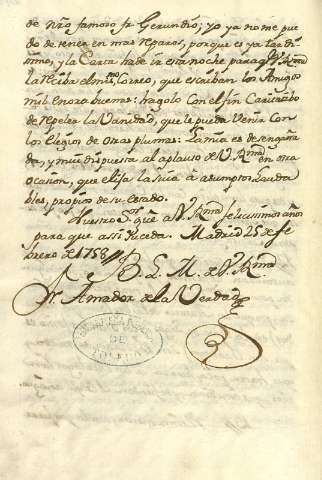 de nr̃o famoso fr. Gerundio; yo ya no me pue
do detener en mas reparos, porque es ya tardi
simo, y la Carta ha de ir esta noche para q̃ V. Rma
la reciba el mismo Correo, que escriban los Amigos
mil enorabuenas: hagolo con el fin Caritativo
de repeler la Vanidad, que le puede venir con
los Elogios de otras plumas: La mia es desengaña
da, y mui dispuesta al aplauso de V. Rma en otra
ocasion, que elija la suia à asumptos lauda
bles, propios de su estado.
Nuestro Sor que a V. Rma felicissimos años
para que assi suceda. Madrid 25 de fe
brero de 1758
B. L. M. de V. Rma
Fr. Amador de la Verdad
DE